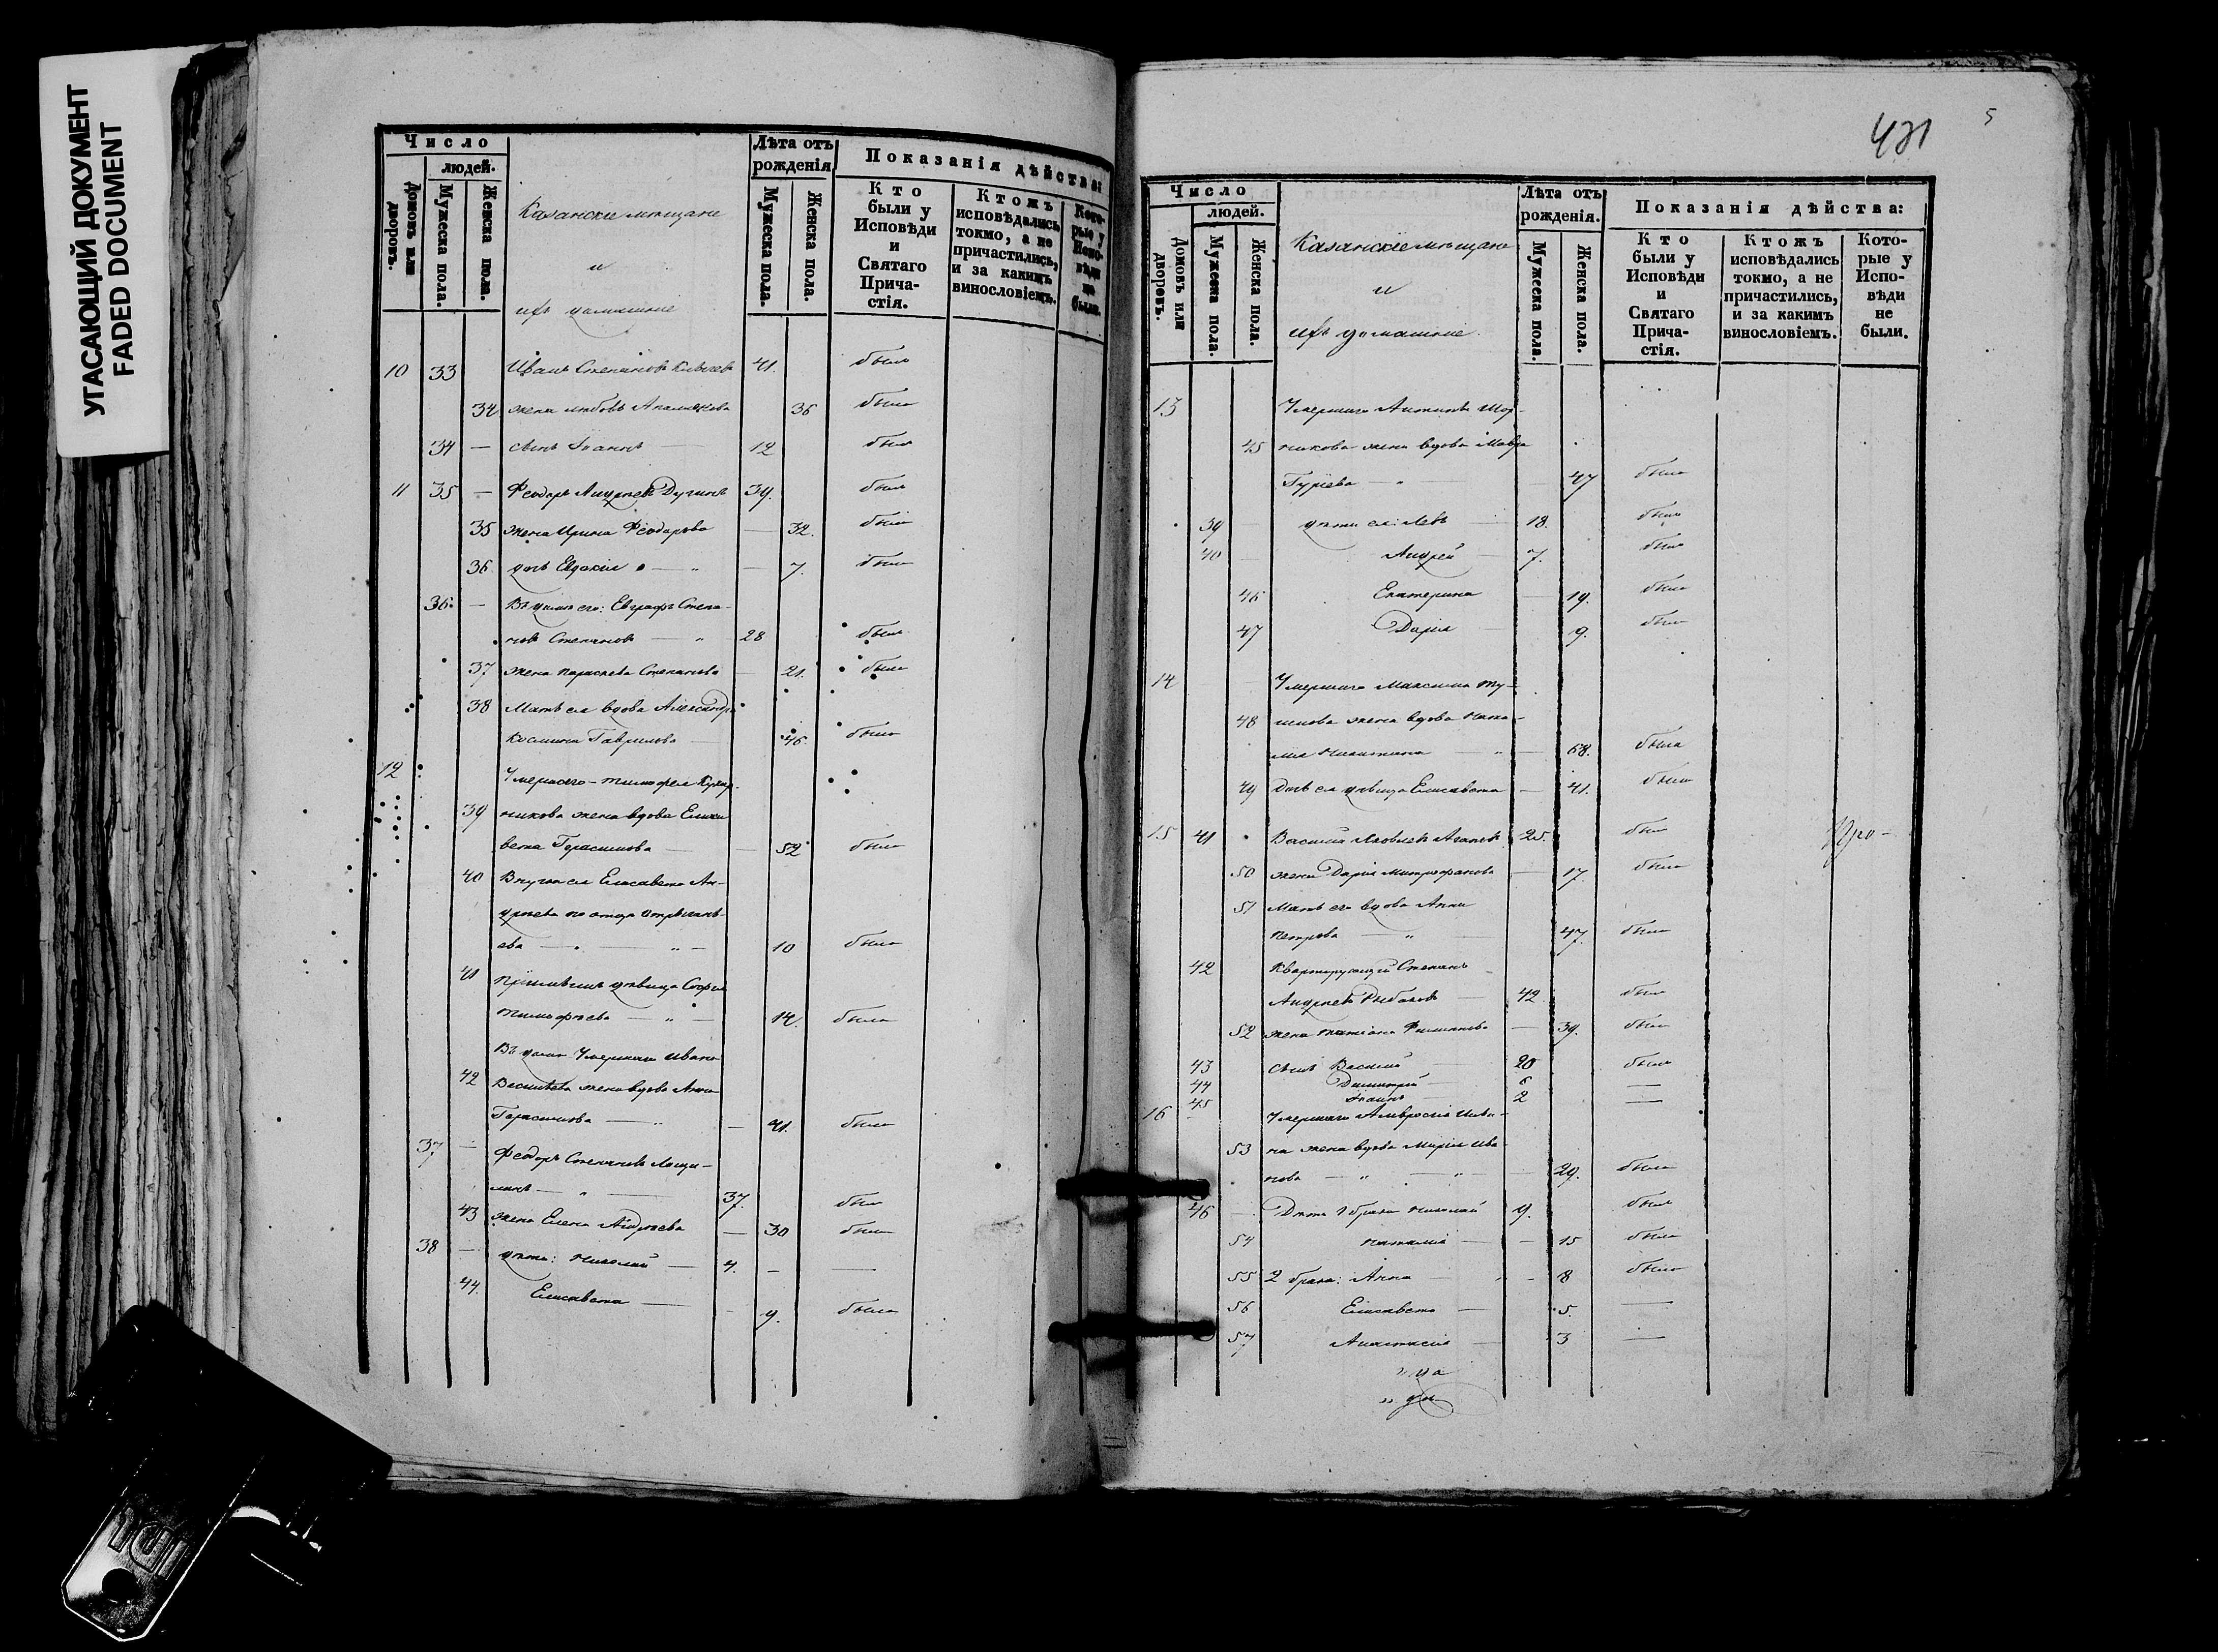 УГАСАЮЩИЙ ДОКУМЕНТ
FADED DOCUMENT
Число
людей.
Домовъ или дворовъ.
Мужеска пола.
Женска пола.
Казанскіе мѣщане
и
ихъ домашніе
Лѣта отъ рожденія
Мужеска пола.
Женска пола.
Показанія дѣйства:
Кто были у Исповѣди и Святаго Прича-стія.
Ктожъ исповѣдались токмо, а не причастились, и за какимъ винословіемъ.
Кото-рые у Испо-вѣди не были.
10 33 Иванъ Степановъ 41. былъ
34 жена Любовь 36 была
34 — сынъ Іоаннъ — 12 былъ
11 35 — Феодоръ Андреевъ Дугинъ 39. былъ
35 жена Ирина Феодорова — 32. была
36 дочь Евдокія — 7. была
36. — Въ домѣ его: Евграфъ Степа-
новъ Степановъ — 28 былъ
37 жена Параскева Степанова — 21. была
38 Мать ея вдова Александра
Космина Гаврилова — 46. была
12 Умершаго Тимофея
39 никова жена вдова Елиса
вета Герасимова — 52 была
40 Внучка ея Елисавета Ан-
дреева по отцу
ева — 10 была
41 дѣвица Софія
Тимофеева — 14. была
Въ домѣ Умершаго Ивана
42 Васильева жена вдова Анна
Герасимова — 41. была
37 — Феодоръ Степановъ
37. былъ
43 жена Елена Андреева — 30 была
38 — дѣти: Николай — 4. — —
44. Елисавета — 9. была
431
5
Число
людей.
Домовъ или дворовъ.
Мужеска пола.
Женска пола.
Казанскіе мѣщане
и
ихъ домашніе.
Лѣта отъ рожденія.
Мужеска пола.
Женска пола.
Показанія дѣйства:
Кто были у Исповѣди и Святаго Прича-стія.
Ктожъ исповѣдались токмо, а не причастились, и за какимъ винословіемъ.
Кото-рые у Испо-вѣди не были.
13 Умершаго Антипа
45 никова жена вдова Мавра
Гуріева — 47 была
39 дѣти ея: Левъ 18. былъ
40 Андрей 7. былъ
46 Екатерина 19. была
47 Дарія 9. была
14 Умершаго Максима
48 жена вдова Ната-
лія Никитина — 68. была
49 Дочь ея дѣвица Елисавета — 41. была
15 41 Василій Яковлевъ 25. былъ
50 жена Дарія Митрофанова — 17. была
51 Мать его вдова Анна
Петрова — 47. была
42 Квартирующій Степанъ
Андреевъ Рыбаковъ — 42 былъ
52 жена Татіана — 39. была
43 сынъ Василій — 20 былъ
44 Димитрій 6 —
45 Іоаннъ — 2 —
16 Умершаго Амвросія
53 на жена вдова Марія Ива-
нова — 29. была
46 Дѣти 1 брака Николай 9. былъ
54 Наталія — 15 была
55 2 брака: Анна — 8 была
56 Елисавета — 5. —
57 Анастасія — 3 —